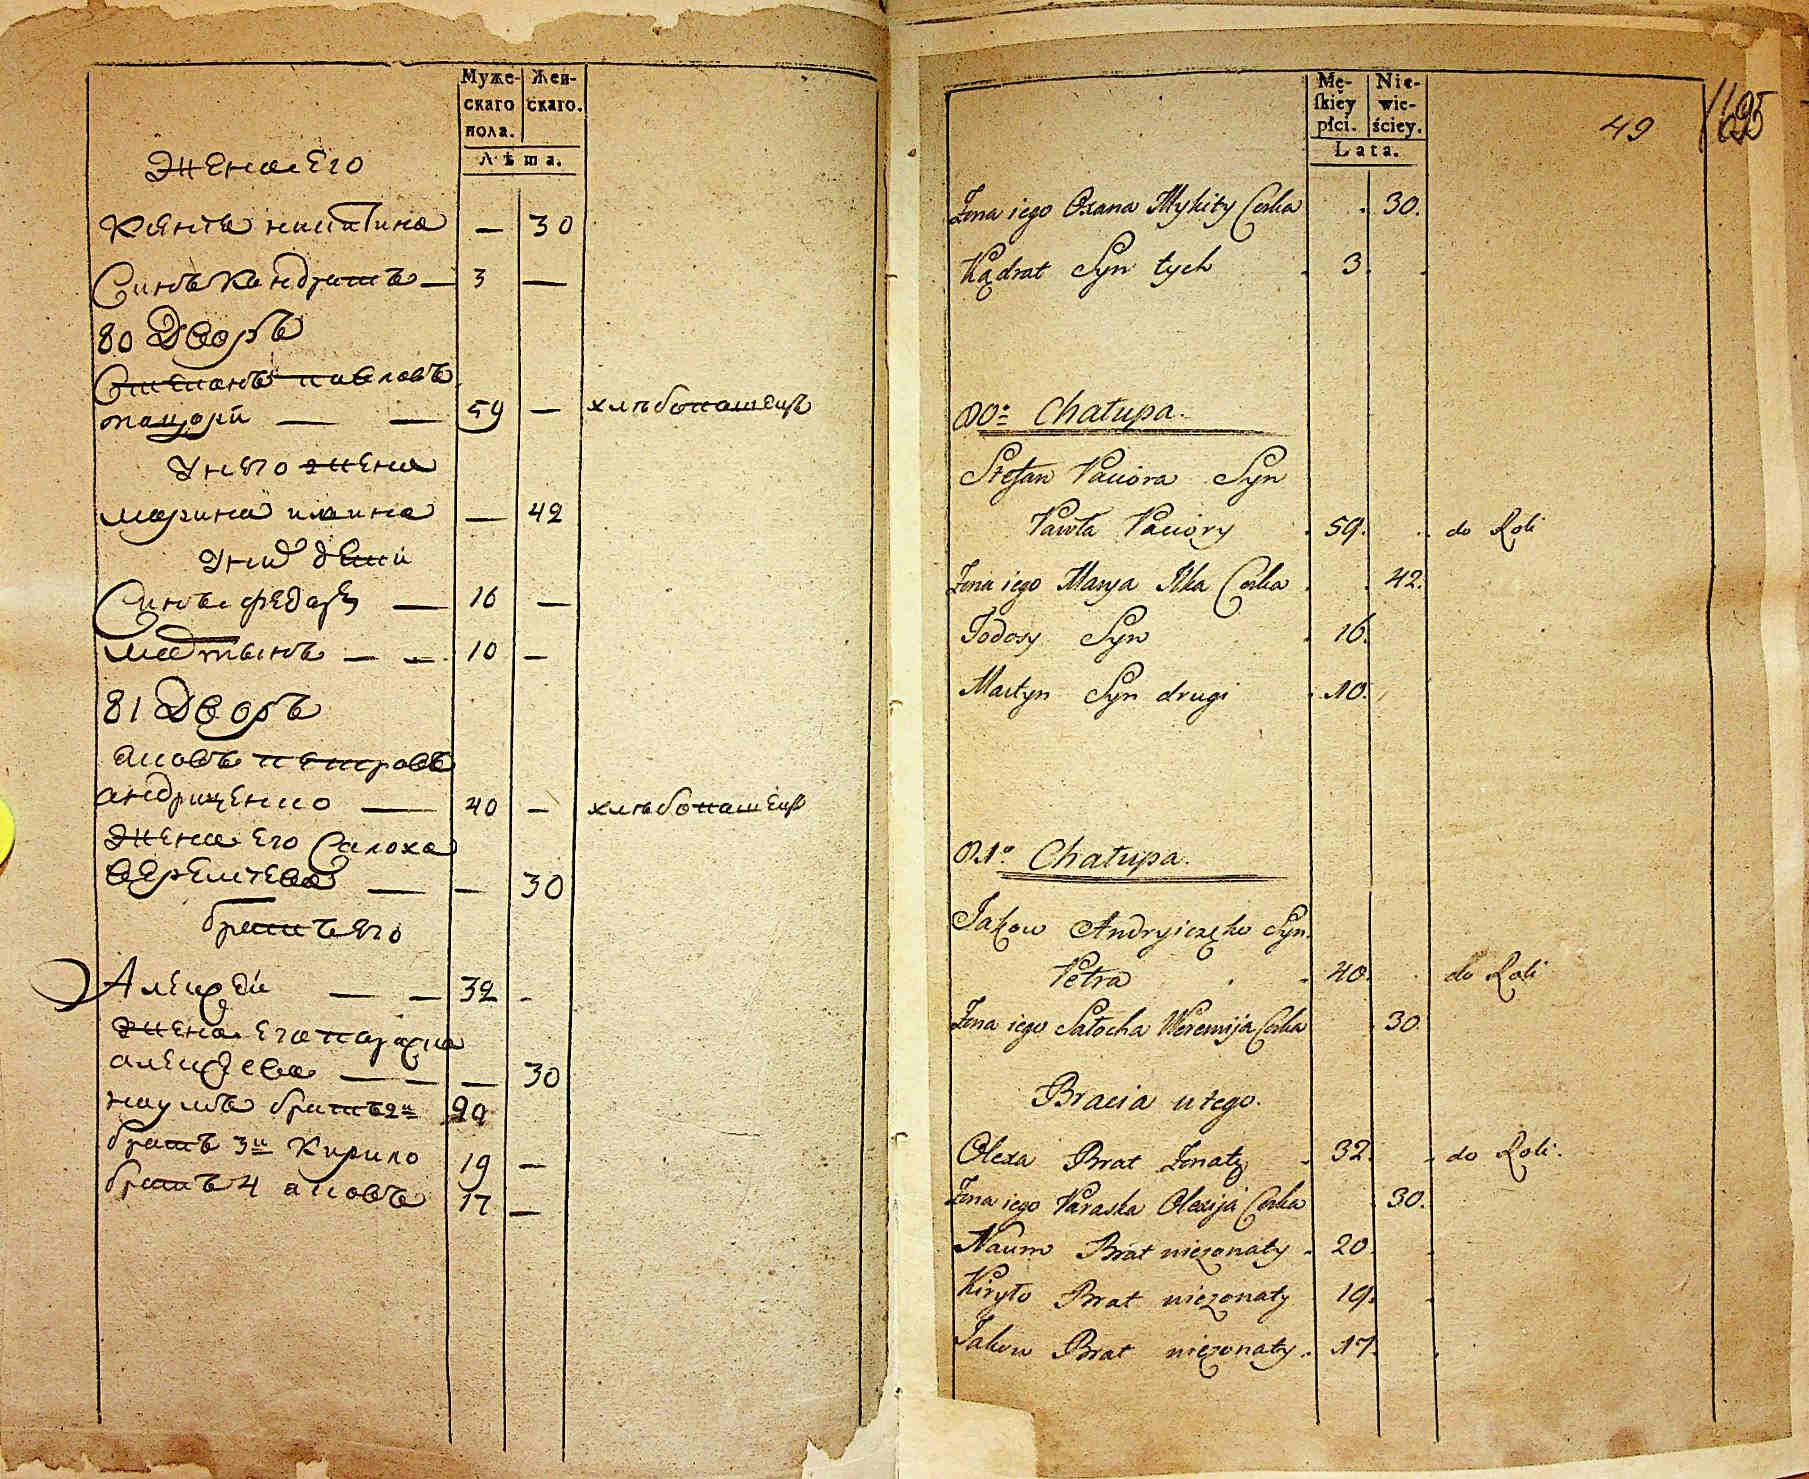 Муже-
скаго
пола.
Жен-
скаго.
Лѣта.
жена его
никитина — 30
Синъ Кондратъ — 3 —
80 Дворъ
Степанъ павловъ
пацюри — — 59 — хлѣбопашецъ
у него жена
марина илкина — 42
у них дети
Синъ федосей — 16 —
мартынъ — — 10 —
81 Дворъ
яковъ петровъ
андриченко — 40 — хлѣбопашецъ
жена его Салоха
веремиева — — 30
братъ его
Алексей — — 32 -
жена его параска
алексеева — — — 30
наумъ братъ 2й 20
братъ 3й Кирило 19 —
братъ 4 яковъ 17 —
Mę-
ſkiéy
płci.
Nie-
wie-
ściey.
Lata.
49
1695
Żona iego Oxana Mykity Corka . 30.
Kądrat Syn tych . 3.
80º Chałupa.
Stefan Paciora Syn
Pawła Paciory . 59. . do Roli
Żona iego Marya Ilka Corka . . 42.
Todosy Syn . 16.
Martyn Syn drugi . 10.
81º Chałupa.
Jakow Andryiczęko Syn
Petra . . 40. . do Roli
Żona iego Sałocha Weremija Corka . 30.
Bracia u tego.
Olexa Brat Żonaty . 32. . do Roli.
Żona iego Paraska Olexija Corka . 30.
Naum Brat nieżonaty . 20. .
Kiryło Brat nieżonaty 19. .
Jakow Brat nieżonaty . 17. .